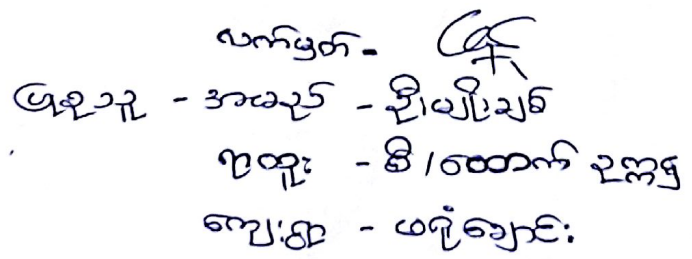 လက်မှတ် -
ပြုစုသူ - အမည် - ဦးမျိုးချစ်
ရာထူး - စီ/ထောက် ဥက္ကဋ္ဌ
ကျေးရွာ - ဖရုံချောင်း